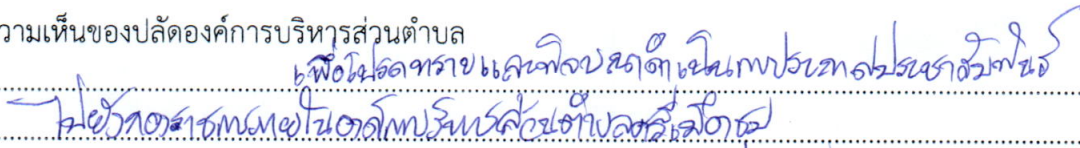 วามเห็นขององปลัดองค์การบริหารส่วนตำบล
เพื่อโปรดทราบและพิจารณาดำเนินการประกาศประชาสัมพันธ์
ไปยังกองราชการภายในองค์การบริหารส่วนตำบลศรีเมืองชุม